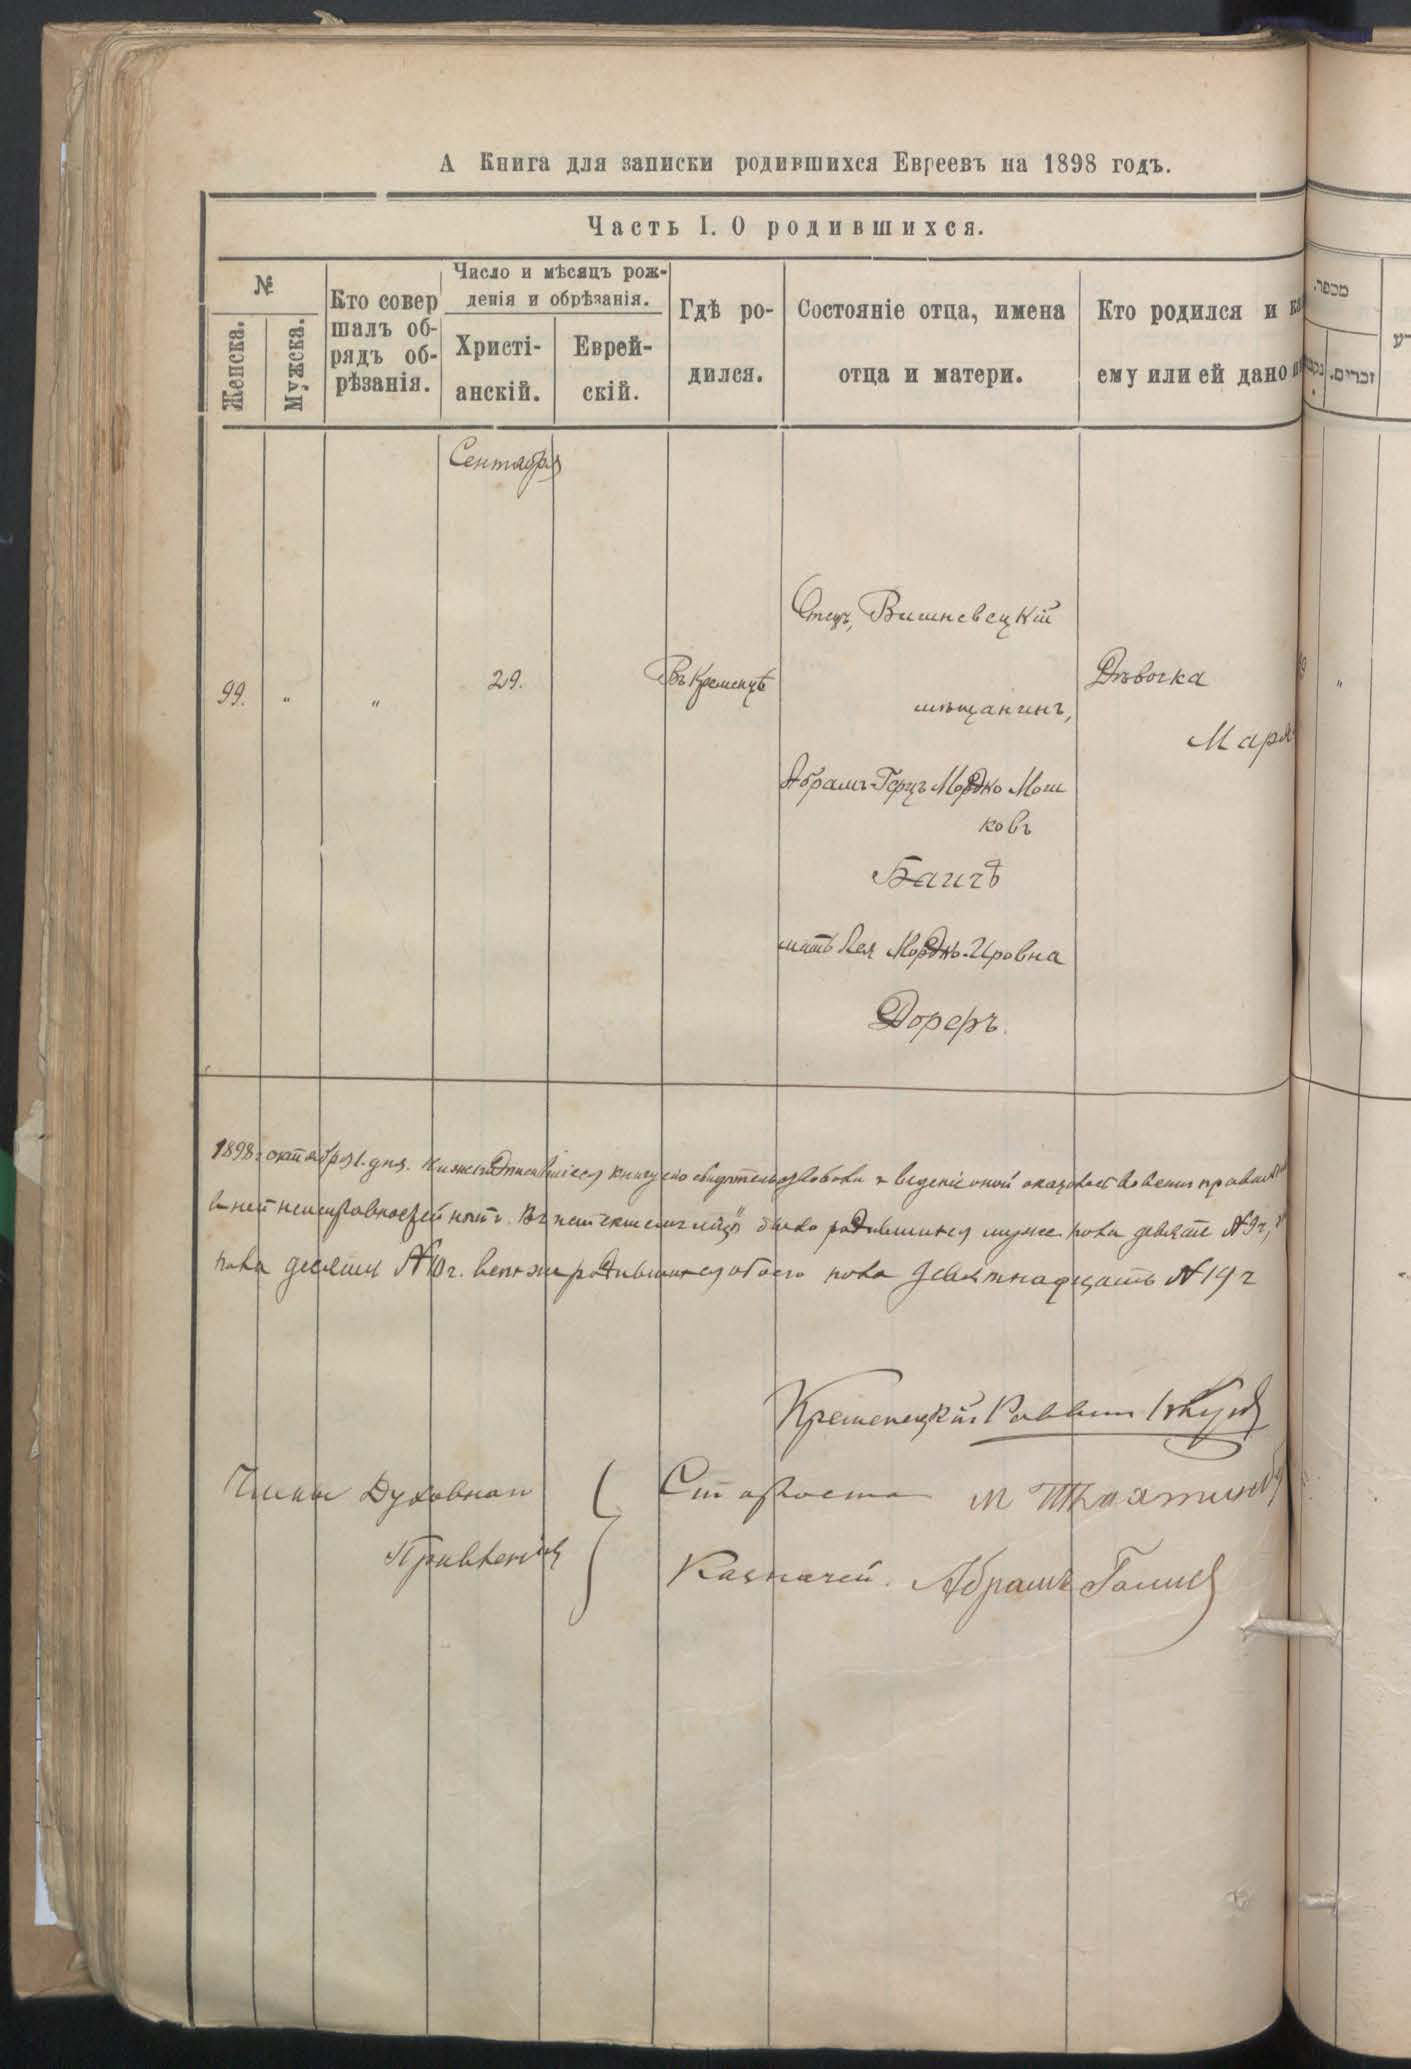 А Книга для записки родившихся Евреевъ на 1898 годъ.
Часть I. О родившихся.
№
Женска.
Мужска.
Кто совер
шалъ об-
рядъ об-
рѣзанія.
Число и мѣсяцъ рож-
денія и обрѣзанія.
Христі-
анскій.
Еврей-
скій.
Гдѣ ро-
дился.
Состояніе отца, имена
отца и матери.
Кто родился и
ему или ей дано
Сентября
99.
"
"
29.
Въ Кременцѣ
Отецъ, Вишневецкій
мѣщанинъ,
Абрамъ-Герцъ Мордко Мош
ковъ
Баичъ
мать Лея Мордко-Ировна
Дореръ.
Дѣвочка
Мар
1898 г. октября 1. дня. книгу сію свидѣтельствовали
въ ней неисправностей нѣтъ. Въ было родившихся муж. пола девять №9ч,
пола десять №10ч. родившихся обоего пола девятнадцать №19ч
Кременецкій Раввинъ
Члены Духовнаго
Правленія
Староста М
Казначей. Абрамъ
מספר.
זכרים.
"